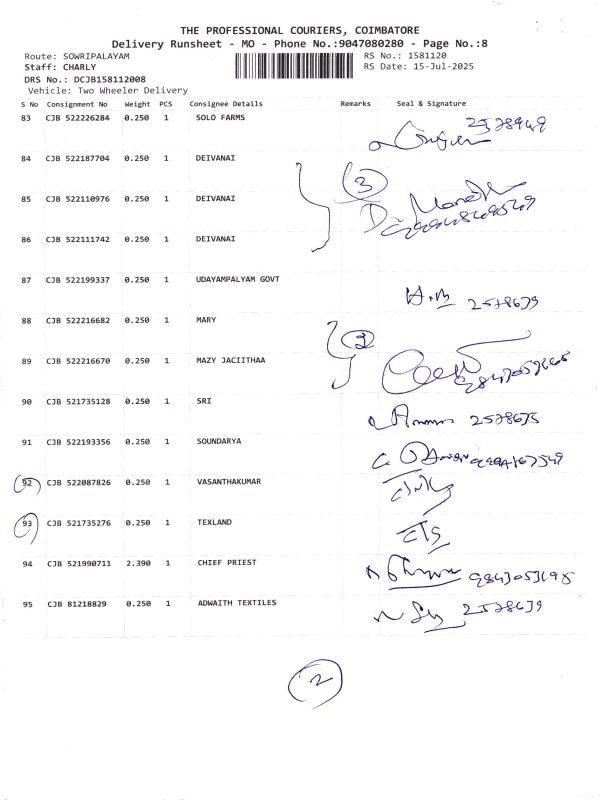 THE PROFESSIONAL COURIERS, COIMBATORE
Delivery Runsheet - MO - Phone No.:9047080280 - Page No.:8
Route: SOWRIPALAYAM RS No.: 1581120
Staff: CHARLY RS Date: 15-Jul-2025
DRS No.: DCJB158112008
Vehicle: Two Wheeler Delivery
S No Consignment No Weight PCS Consignee Details Remarks Seal & Signature
83 CJB 522226284 0.250 1 SOLO FARMS
84 CJB 522187704 0.250 1 DEIVANAI
3
85 CJB 522110976 0.250 1 DEIVANAI
86 CJB 522111742 0.250 1 DEIVANAI
87 CJB 522199337 0.250 1 UDAYAMPALYAM GOVT
2578639
88 CJB 522216682 0.250 1 MARY
89 CJB 522216670 0.250 1 MAZY JACIITHAA
90 CJB 521735128 0.250 1 SRI
91 CJB 522193356 0.250 1 SOUNDARYA
92 CJB 522087826 0.250 1 VASANTHAKUMAR
93 CJB 521735276 0.250 1 TEXLAND
94 CJB 521990711 2.390 1 CHIEF PRIEST
95 CJB 81218829 0.250 1 ADWAITH TEXTILES
2578639
2